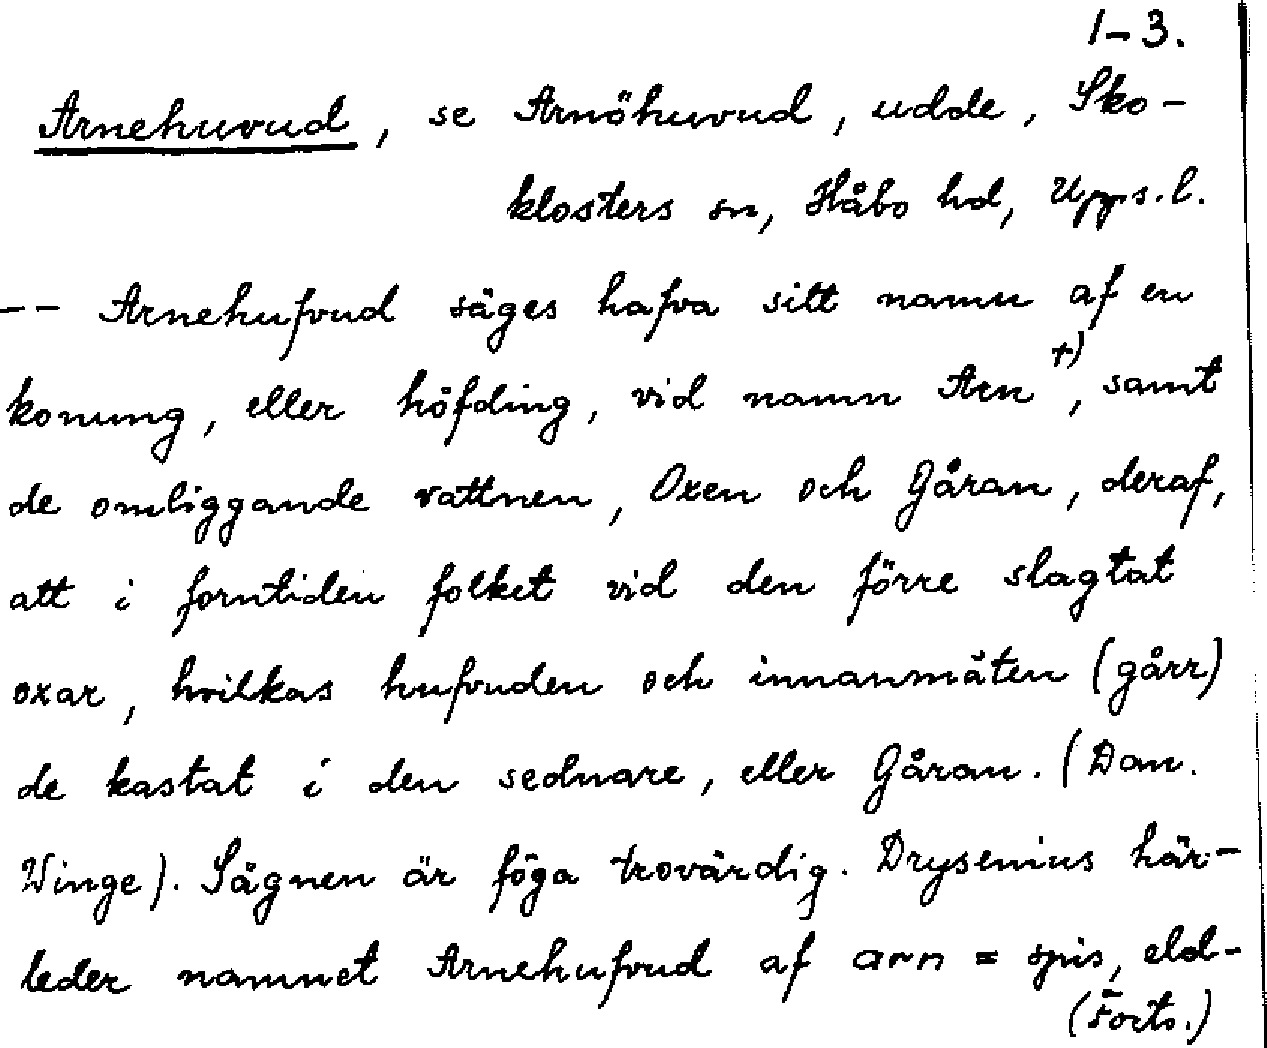 1-3.
Arnehuvud, se Arnöhuvud, udde, Sko-
klosters sn, Håbo hd, Upps.l.
-- Arnehufvud säges hafva sitt namn af en
konung, eller höfding, vid namn Arn +), samt
de omliggande vattnen, Oxen och Gåran, deraf,
att i forntiden folket vid den förre slagtat
oxar, hvilkas hufvuden och innanmäten (gårr)
de kastat i den sednare, eller Gåran. (Dan.
Winge). Sägnen är föga trovärdig. Drysenius här-
leder namnet Arnehufvud af arn = spis, eld-
(Forts.)